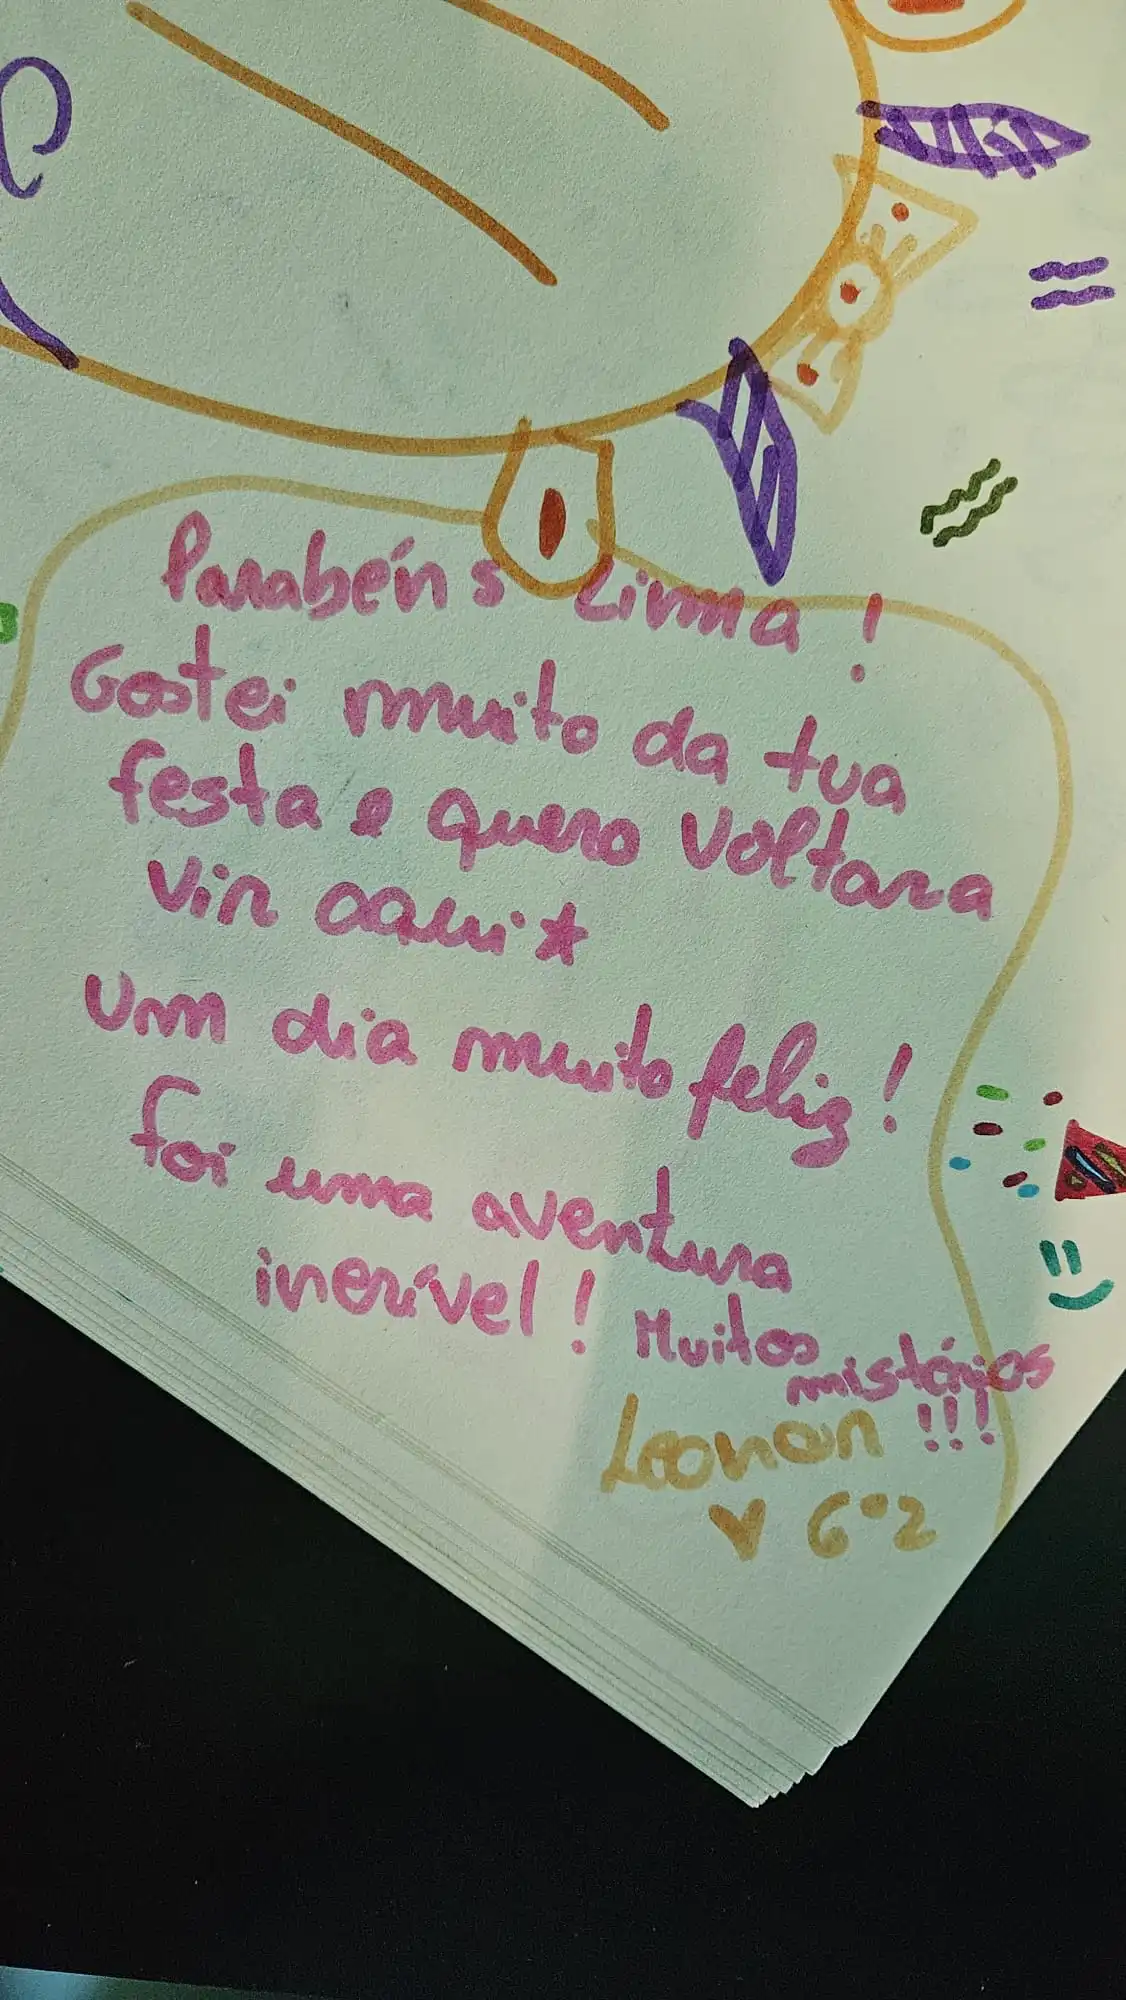 Parabéns Livma!
Gostei muito da tua
festa e quero voltara
vir aqui
Um dia muito feliz!
foi uma aventura
incrível! Muitos
mistérios
!!!
Leonan
6º2